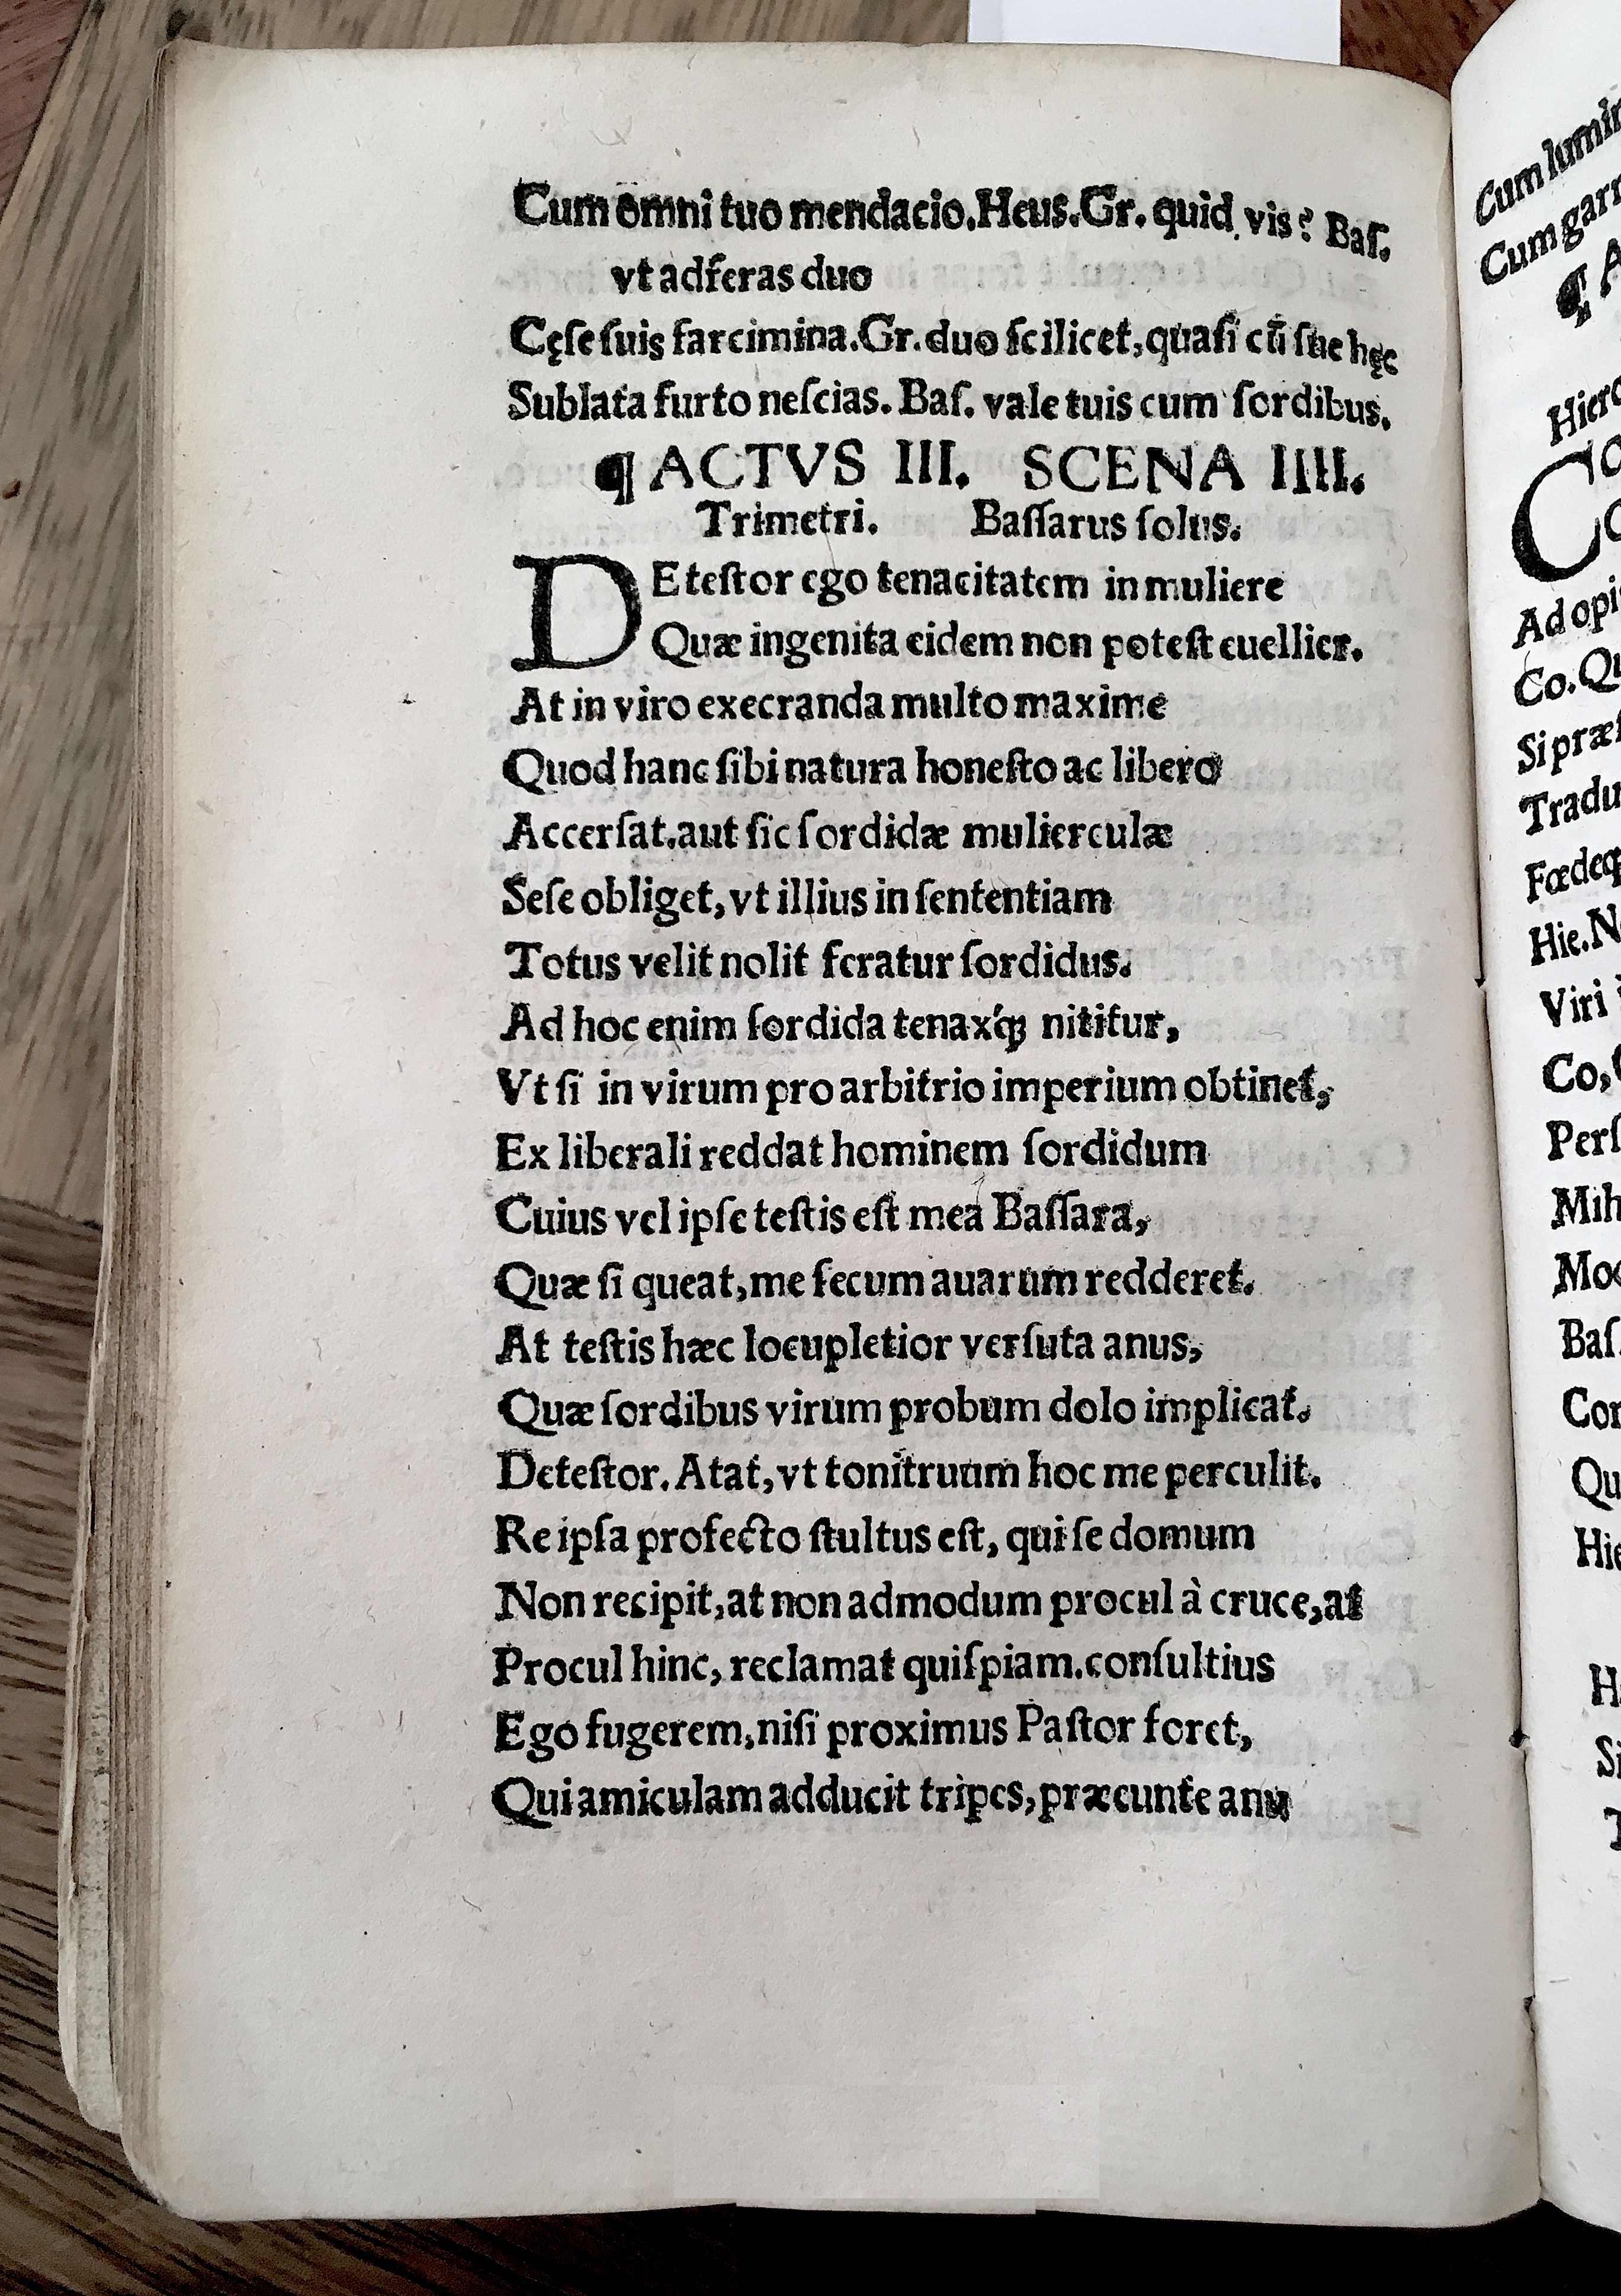 Cum omni tuo mendacio.Heus.Gr. quid vis? Baſ.
vt adferas duo
Cęſe ſuis farcimina.Gr.duo ſcilicet,quaſi cũ ſue hęc
Sublata furto neſcias. Baſ. vale tuis cum ſordibus.
¶ ACTVS III. SCENA IIII.
Trimetri. Baſſarus ſolus.
DEteſtor ego tenacitatem in muliere
Quæ ingenita eidem non poteſt euellier.
At in viro execranda multo maxime
Quod hanc ſibi natura honeſto ac libero
Accerſat.aut ſic ſordidæ mulierculæ
Seſe obliget, vt illius in ſententiam
Totus velit nolit feratur ſordidus.
Ad hoc enim ſordida tenax'q; nititur,
Vt ſi in virum pro arbitrio imperium obtinet,
Ex liberali reddat hominem ſordidum
Cuius vel ipſe teſtis eſt mea Baſſara,
Quæ ſi queat, me ſecum auarum redderet.
At teſtis hæc locupletior verſuta anus,
Quæ ſordibus virum probum dolo implicat.
Deteſtor. Atat, vt tonitruum hoc me perculit.
Re ipſa profecto ſtultus eſt, qui ſe domum
Non recipit, at non admodum procul à cruce, at
Procul hinc, reclamat quiſpiam.conſultius
Ego fugerem, niſi proximus Paſtor foret,
Qui amiculam adducit trìpes, præeunte anu
Cum
Cum
¶ A
Ad
Co.
Si
Hie.
Viri
Co,
Mih
Baſ.
Qu